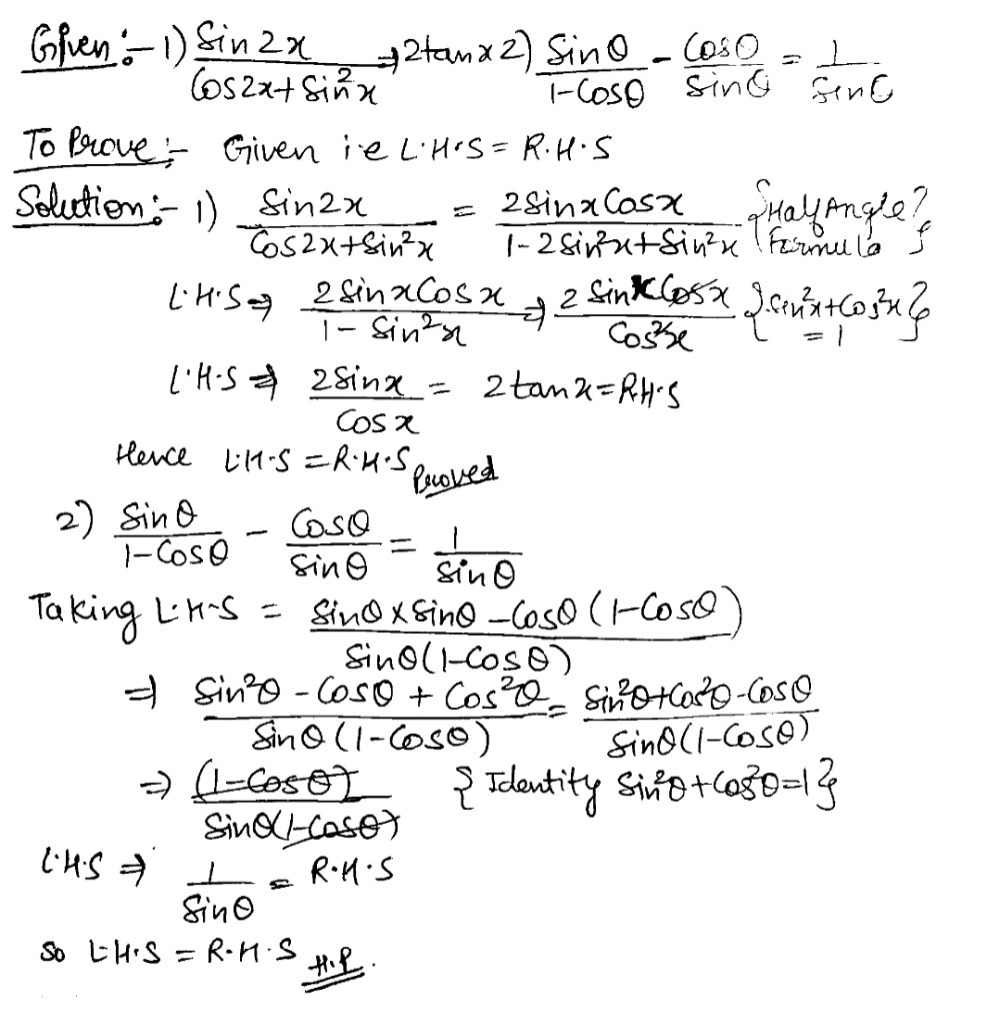 Given :- 1) Sin 2x / Cos2x + Sin²x ⇒ 2tanx 2) Sinθ / 1-Cosθ - Cosθ / Sinθ = 1 / Sinθ
To Prove :- Given i.e L.H.S = R.H.S
Solution :- 1) Sin2x / Cos2x + Sin²x = 2SinxCosx / 1-2Sin²x+Sin²x {Half Angle Formula}
L.H.S ⇒ 2SinxCosx / 1-Sin²x ⇒ 2SinxCosx / Cos²x {Sin²x+Cos²x = 1}
L.H.S ⇒ 2Sinx / Cosx = 2tanx = RH.S
Hence L.H.S = R.H.S Proved
2) Sinθ / 1-Cosθ - Cosθ / Sinθ = 1 / Sinθ
Taking L.H.S = Sinθ x Sinθ - Cosθ (1-Cosθ) / Sinθ(1-Cosθ)
⇒ Sin²θ - Cosθ + Cos²θ / Sinθ (1-Cosθ) = Sin²θ+Cos²θ-Cosθ / Sinθ(1-Cosθ)
⇒ (1-Cosθ) / Sinθ(1-Cosθ) {Identity Sin²θ+Cos²θ=1}
L.H.S ⇒ 1 / Sinθ = R.H.S
So L.H.S = R.H.S H.P.